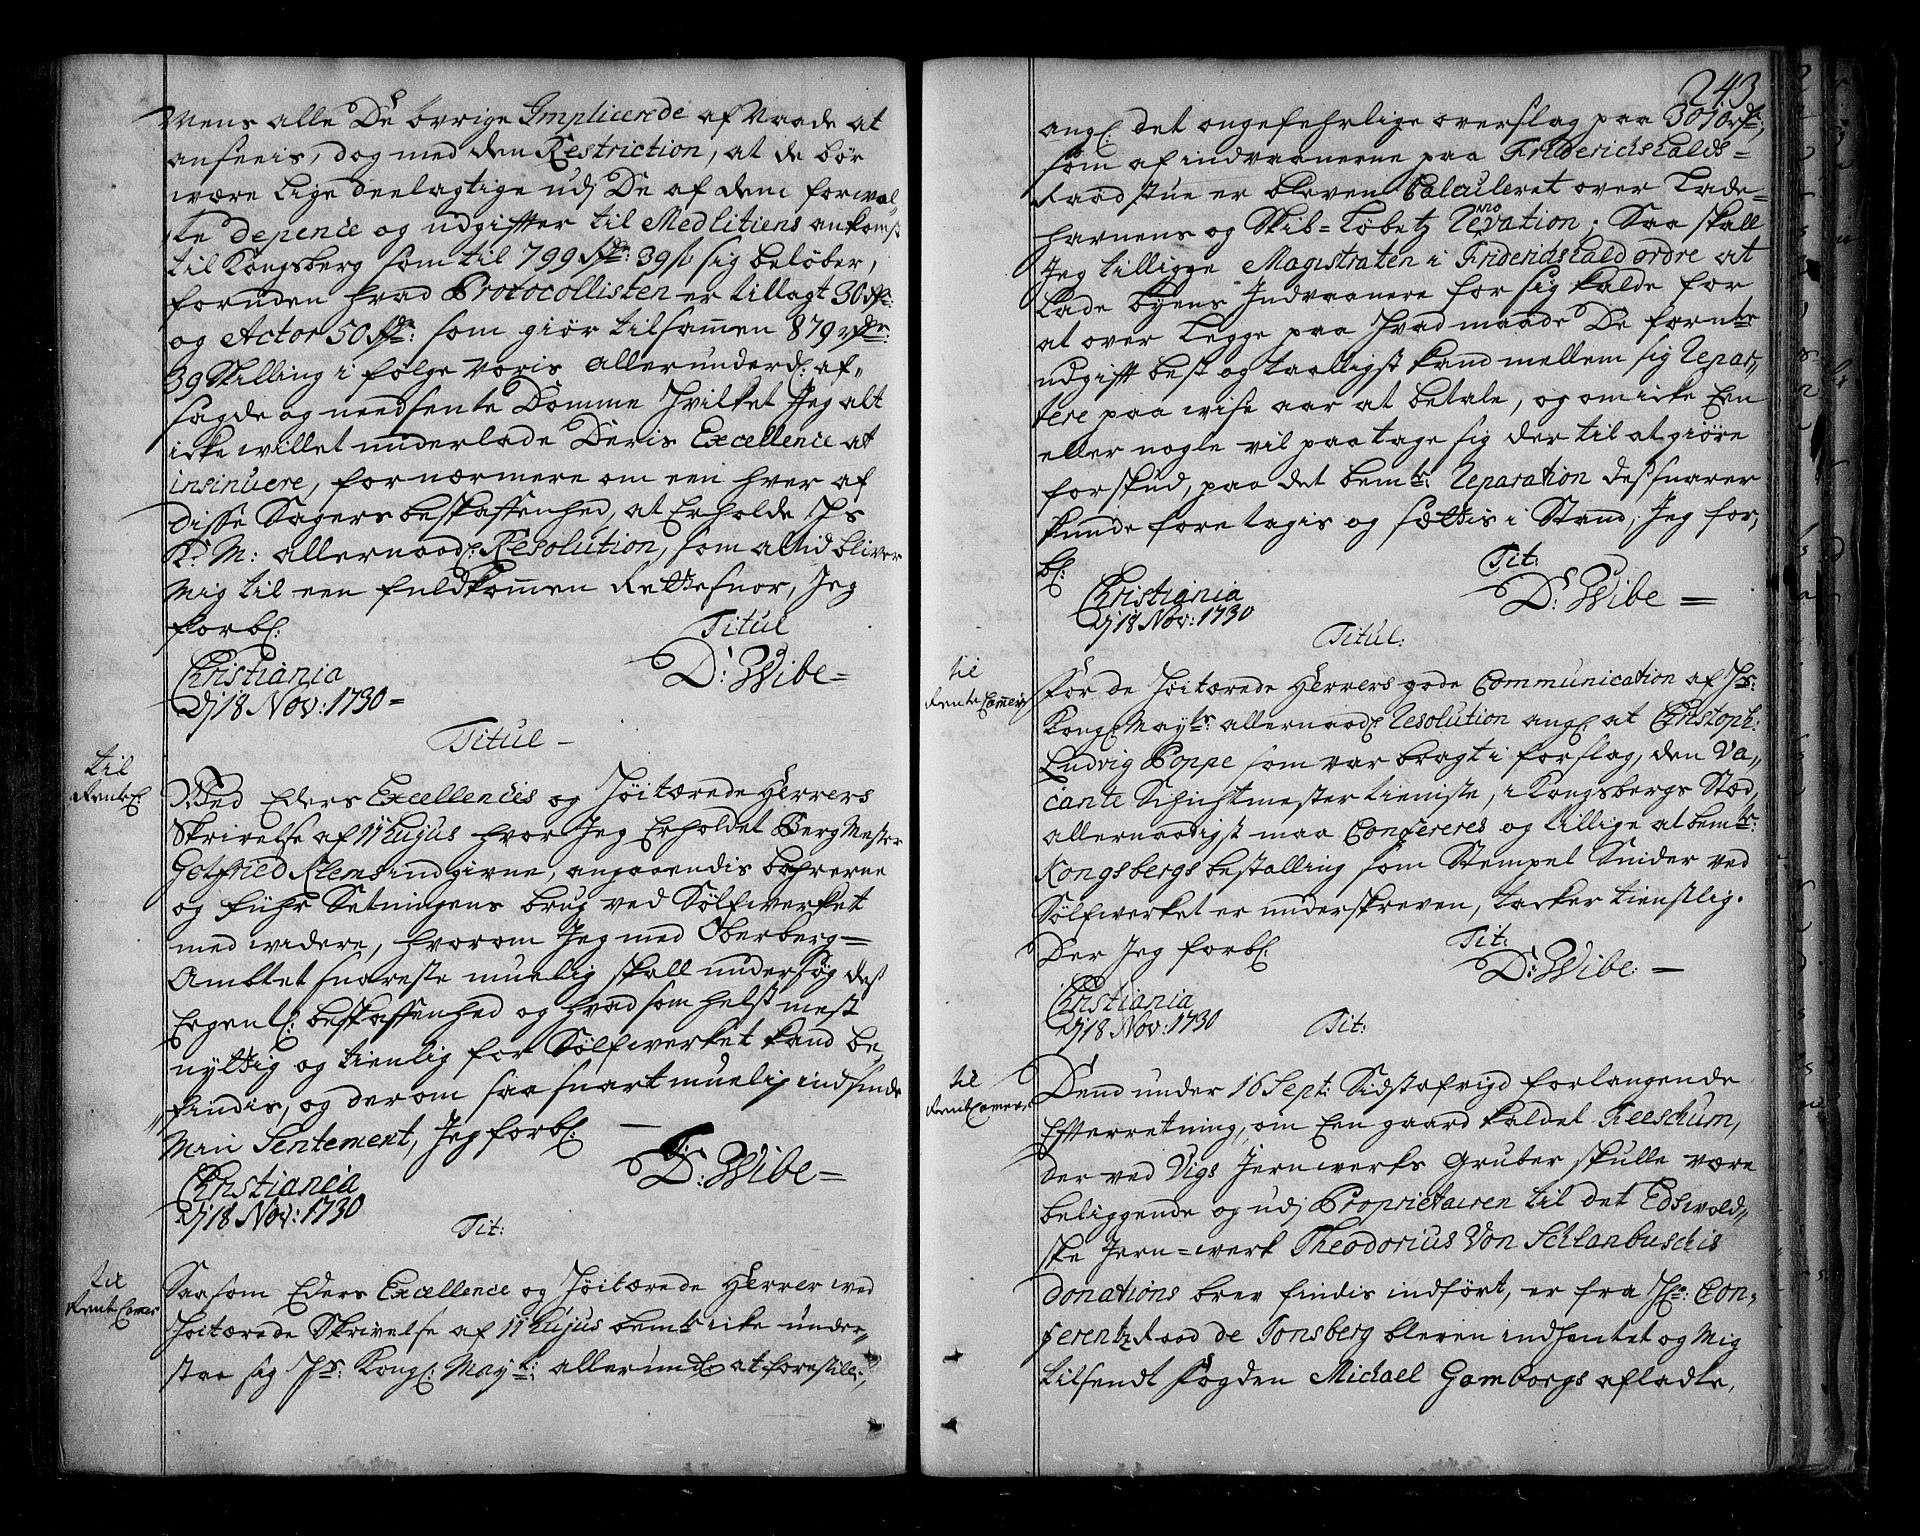 Mens alle De övrige Implicerede af Naade at
anseeis, dog med den Restriction, at de bör
være lige deelagtige udj De af dem forvol-
te depence og udgiffter til Meditiens ankomst
til Kongsberg som til 799 rdr: 39 s sig belöber,
foruden hvad Protocollisten er tillagt 30 rdr:
og Actor 50 rdr: som giör tilsamen 879 rdr:
39 Skilling i fölge voris allerunderd: af-
sagde og needsente Domme Hvilket Jeg alt
icke villet underlade Deris Excellence at
insinuere, for nærmere om een hver af
disse Sagers beskaffenhed, at Erholde Hs
K: M: allernaad: Resolution, som altid bliver
Mig til een fuldkomen Rettesnor, Jeg
forbl:
Titul
Christiania
D: Wibe =
dj 18 Nov: 1730 =
Titul -
til
Rentec:
Med Eders Excellences og Höitærede Herrers
Skrivelse af 11 hujus hvor Jeg Erholdet Berg Mester
Gotfried Klems indgivne, angaaendis bohrerne
og führ Setningens brug ved Sölfverket
med videre, hvorom Jeg med Oberberg=
Ambtet snareste muelig skall undersög des
Egentl: beskaffenhed og hvad som helst mest
nyttig og tienlig for Sölfverket kand be-
findis, og derom saa snart muelig indsende
Min Sentement, Jeg forbl:
D: Wibe =
Christiania
dj 18 Nov: 1730
Tit:
til
Rente Camer
Saasom Eders Excellence og Höitærede Herrer ved
Höitærede Skrivelse af 11 hujus bemt icke under-
staa sig Hs: Kong: Mayt: allerund at forestille,
243
ang: det ongefehrlige overslag paa 3010 rdr:,
som af indvaanerne paa Friderichshalds=
Raadstue er bleven Calculeret over Lade-
havnens og Skib-Löbetz Renovation; Saa skall
Jeg tillige Magistraten i Friderichshald ordre at
lade byens Indvaanere for sig kalde for
at over Legge paa Hvad maade De fornte
udgifft best og taalligst kand mellem sig Repar-
tere paa visse aar at betale, og om icke Een
eller nogle vil paatage sig der til at giöre
forskud, paa det bemte: Reparation des snarer
kunde foretagis og sættis i Stand, Jeg for,
bl:
Tit:
Christiania
D: Wibe =
dj 18 Nov: 1730
Titul:
til
Rente Camer
For de Höitærede Herrers gode Communication af Hs:
Kong: Mayts: allernaad: Resolution ang: at Christoph:
Ludvig Poppe som var bragt i forslag, den Va-
cante Schichtmester tieniste, i Kongsbergs Stæd,
allernaadigst maa Confereres og tillige at bemte:
Kongsbergs bestalling som Stempel Snider ved
Sölfverket er underskreven, tacker tienstlig.
Der Jeg forbl:
Tit:
D: Wibe: =
Christiania
dj 18 Nov: 1730
Tit:
til
Rente Camer
Dend under 16 Sept: Sidstafvigd forlangende
Efterretning, om Een gaard kaldet Feeschum,
der ved Vigs Jernverks Gruber skulle være
beliggende og udj Proprietairen til det Edsvold-
ske Jern=verk Theodorius Von Schlanbuschis
donations brev findis indfört, er fra Hr: Con-
ferentz Raad de Tonsberg bleven indhentet og Mig
tilsendt Fogden Michael Gamborgs afladte,